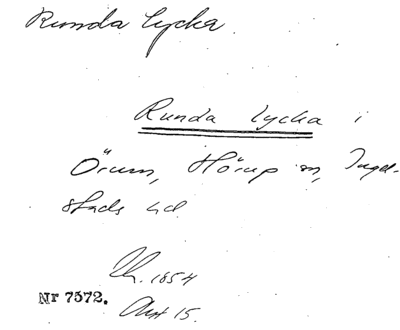 Runda lycka
Runda lycka i
Örum, Hörup sn, Ingel-
stads hd
Lh. 1854
Nr 7572. Akt 15.